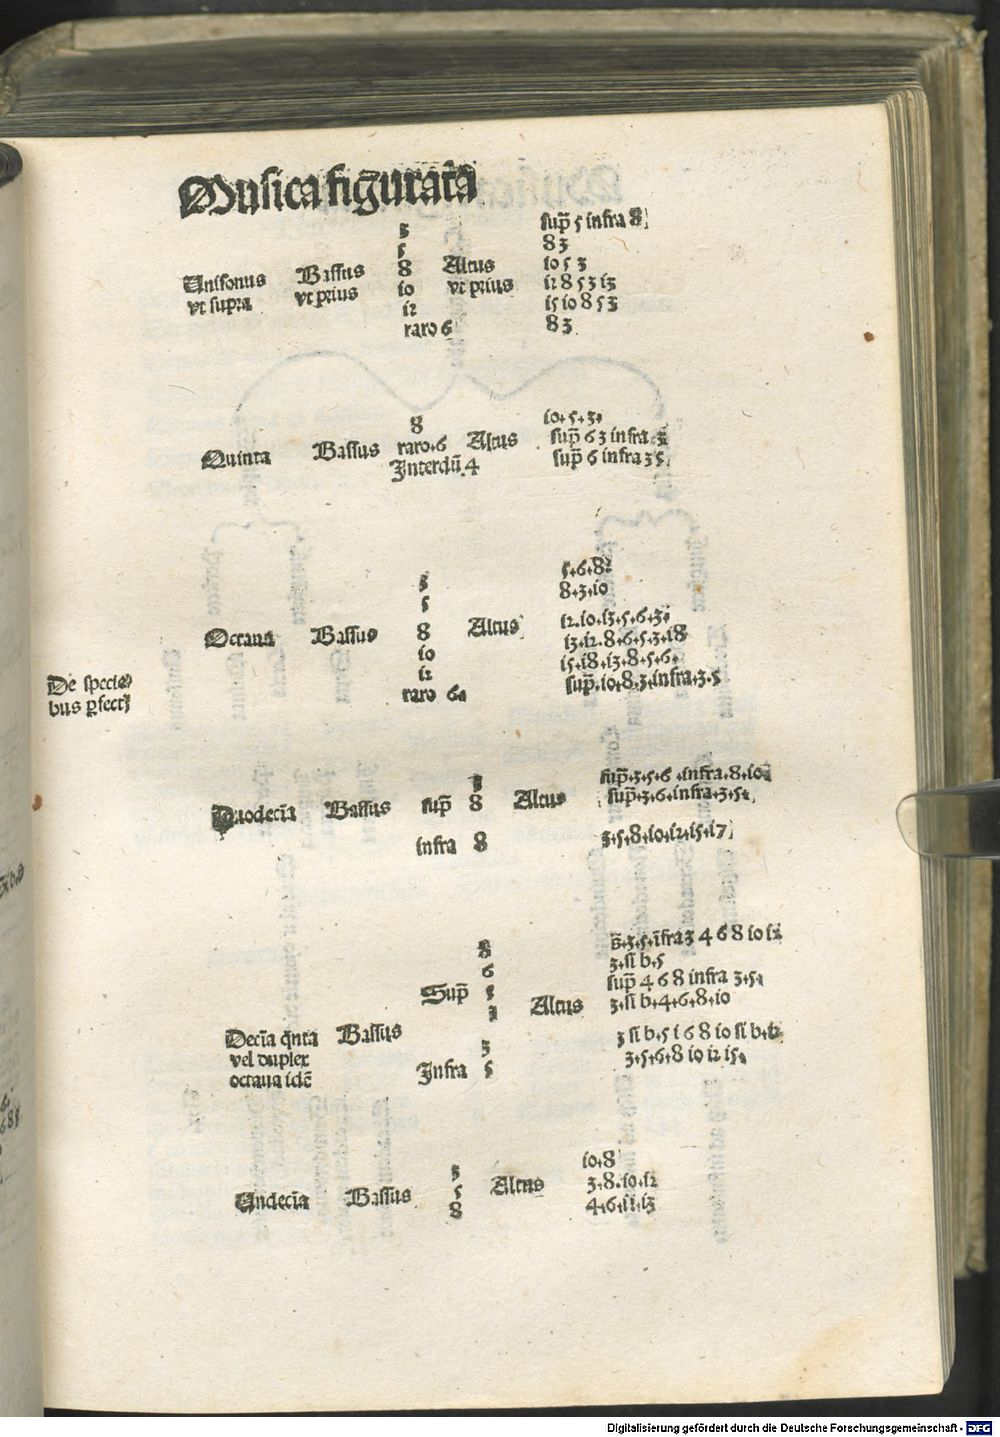 Musica figurata
3 sup̃ 5 infra 8
5 8 3
Unisonus Bassus 8 Altus 10 5 3
vt supra vt prius 10 vt prius 12 8 5 3 13
12 15 10 8 5 3
raro 6 8 3
8 10.5.3.
Quinta Bassus raro.6 Altus sup̃ 6 3 infra 3
Interdū.4 sup̃ 6 infra 3 5
3 5.6.8
5 8.3.10
Octaua Bassus 8 Altus 12.10.13.5.6.3.
10 13.12.8.6.5.3.18
12 15.18.13.8.5.6.
raro 6. sup̃.10.8.3.infra.3.5
De specie⸗
bus ꝑfectꝭ
3 sup̃.3.5.6.infra.8.10
Duodecĩa Bassus sup̃ 8 Altus sup̃.3.6.infra.3.5.
infra 8 3.5.8.10.12.15.17
8 3.5.ĩfra 3 4 6 8 10 12
6 3.si b.5
Sup̃ 5 Altus sup̃ 4 6 8 infra 3.5.
3 3.si b.4.6.8.10
Decĩa q̃nta Bassus 3 3 si b.5 1 6 8 10 si b.12
vel duplex Infra 5 3.5.6.8 10 12 15.
octaua idẽ
3 10.8
Undecĩa Bassus 5 Altus 3.8.10.12
8 4.6.11.13
Digitalisierung gefördert durch die Deutsche Forschungsgemeinschaft - DFG